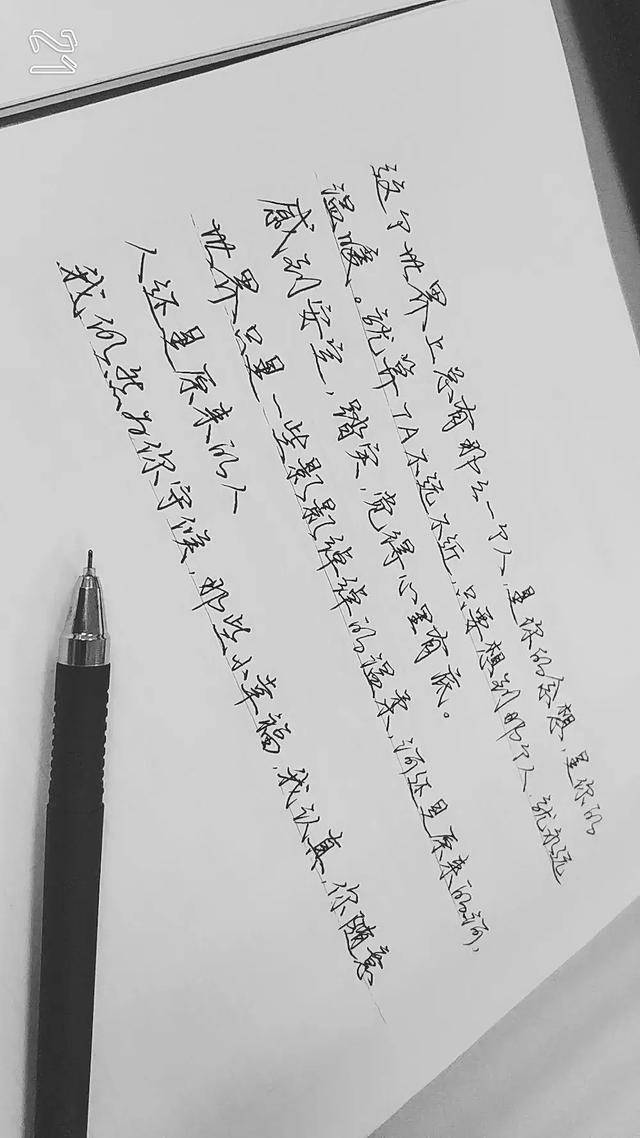 这个世界上总有那么一个人，是你的念想，是你的
温暖。就算TA不远不近，只要想到那个人，就永远
感到安定，踏实，觉得心里有底。
世界只是一些影影绰绰的温柔，河还是原来的河，
人还是原来的人
我仍然为你守候，那些小幸福，我认真，你随意
21